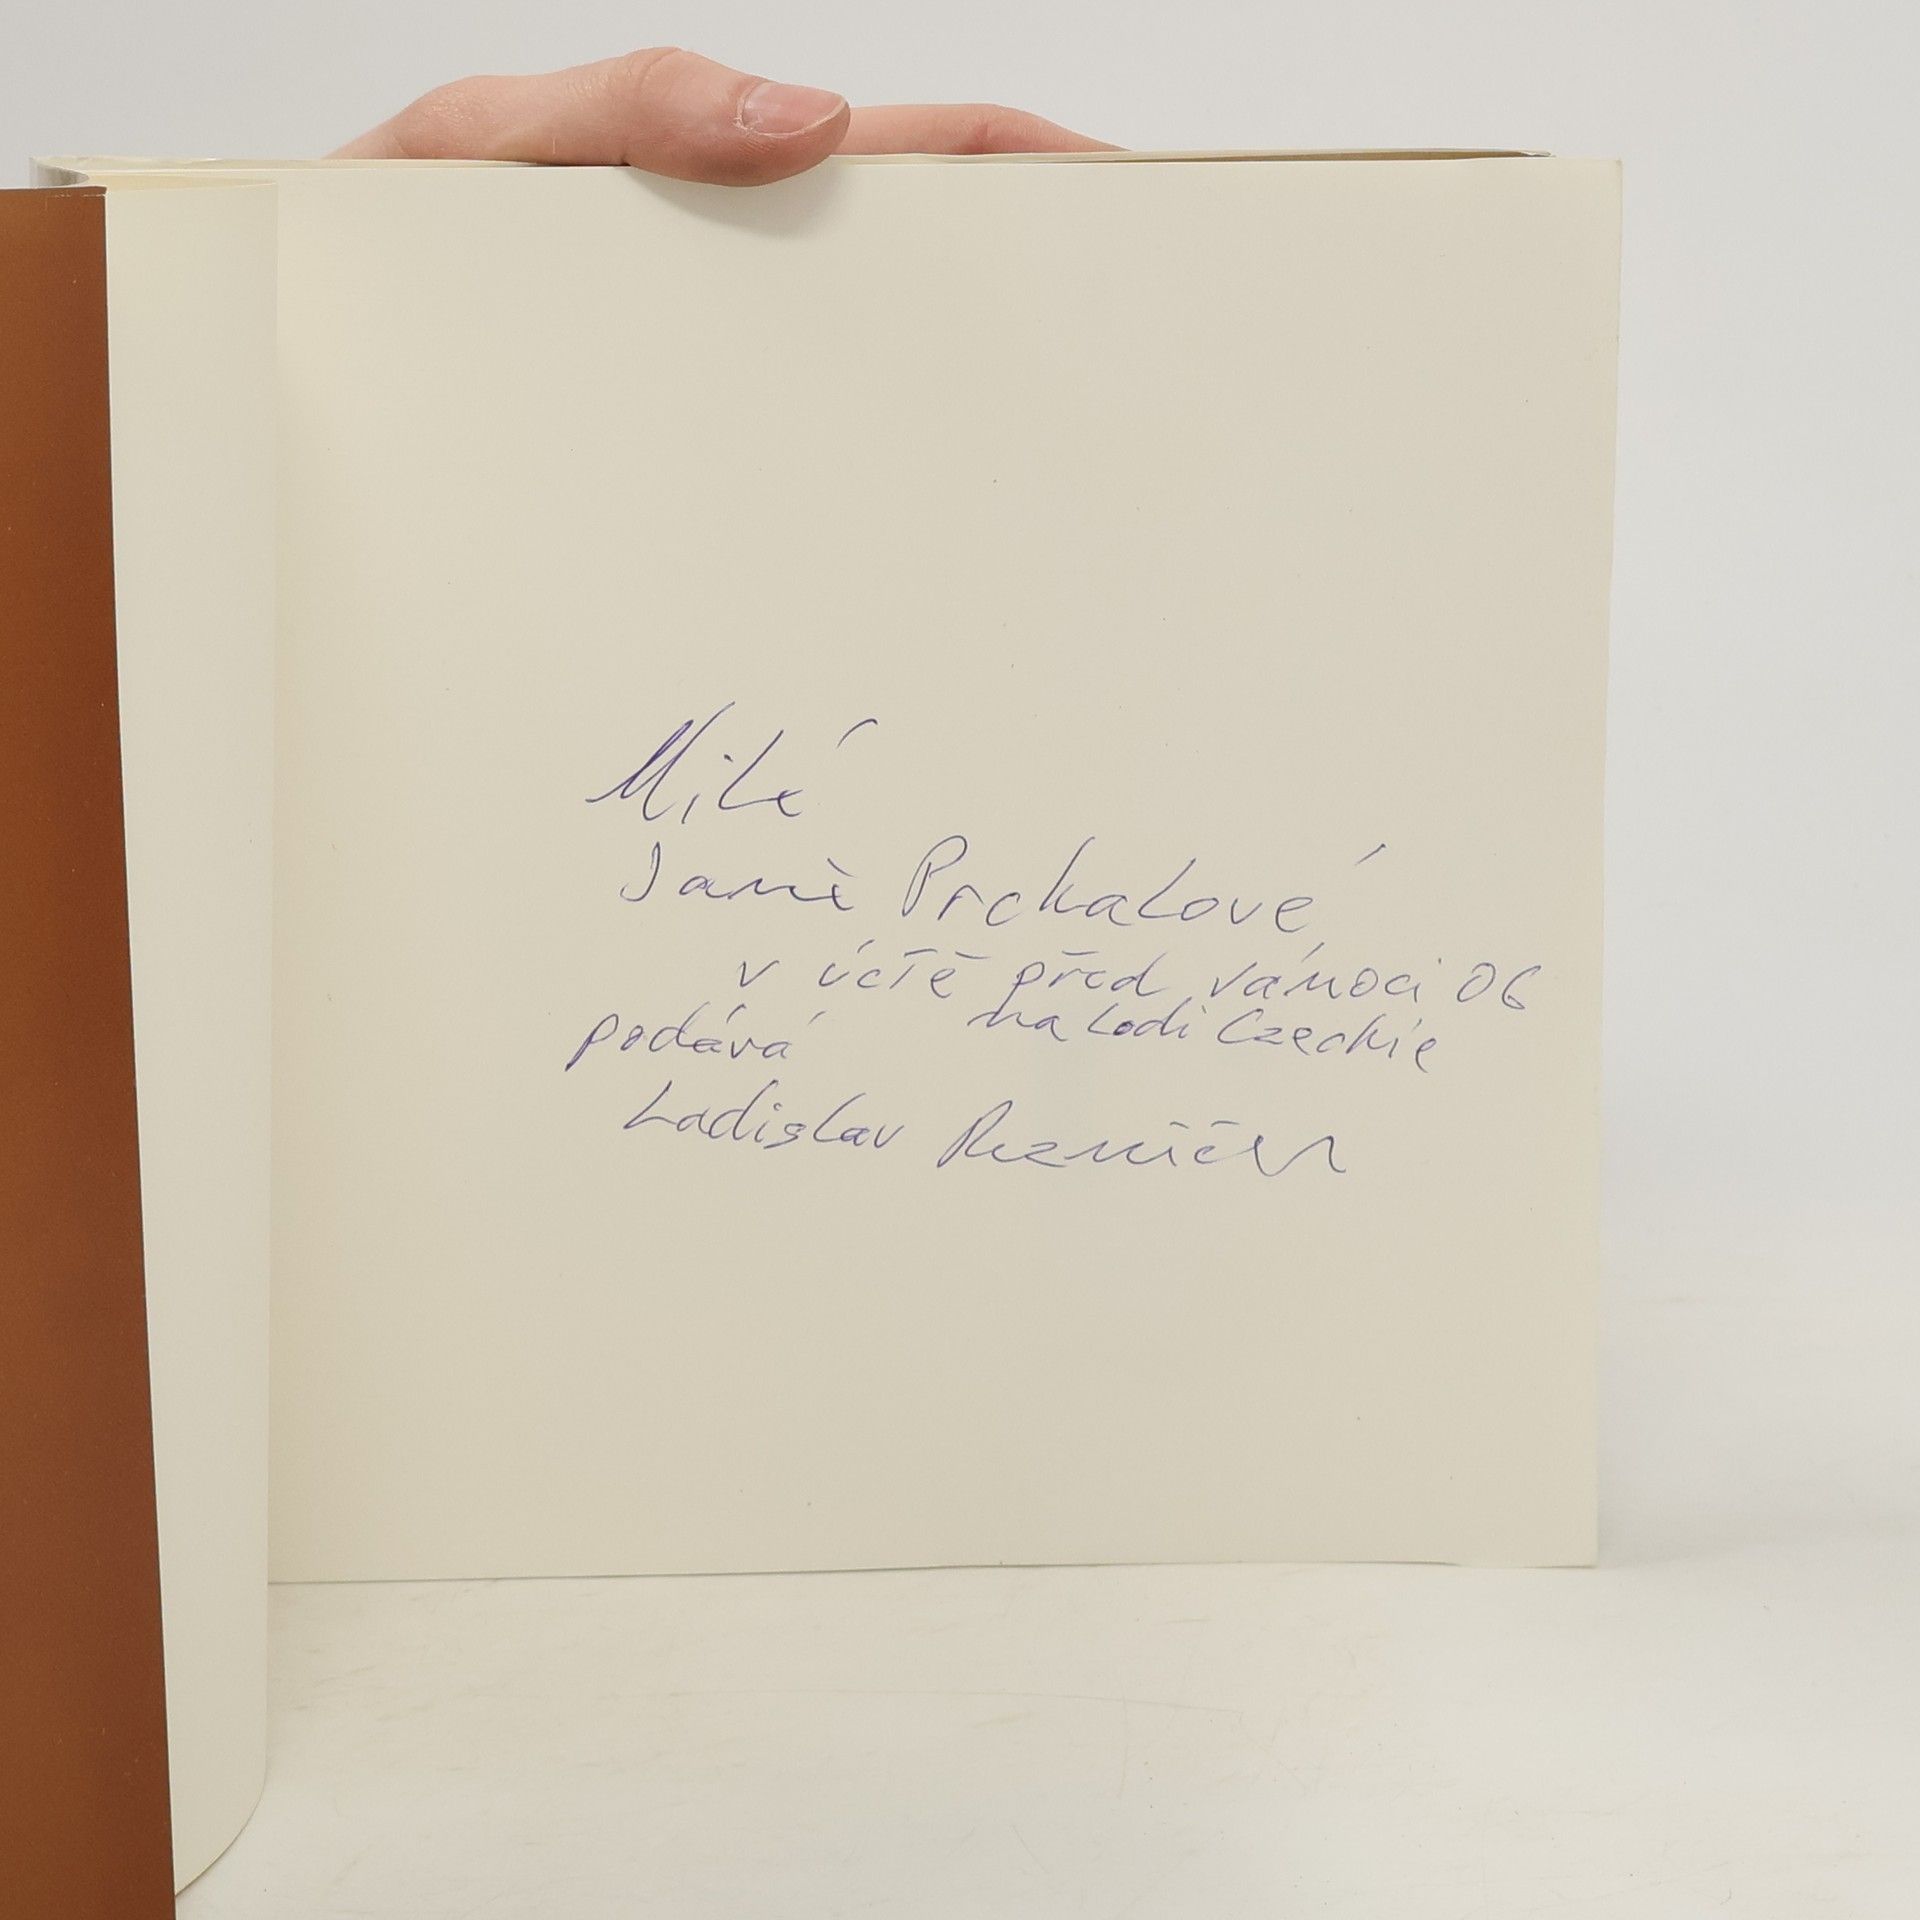 Milé
Janě Prckalové
v úctě před vánoci 06
na Lodi Czechie
podává
Ladislav Řezníček